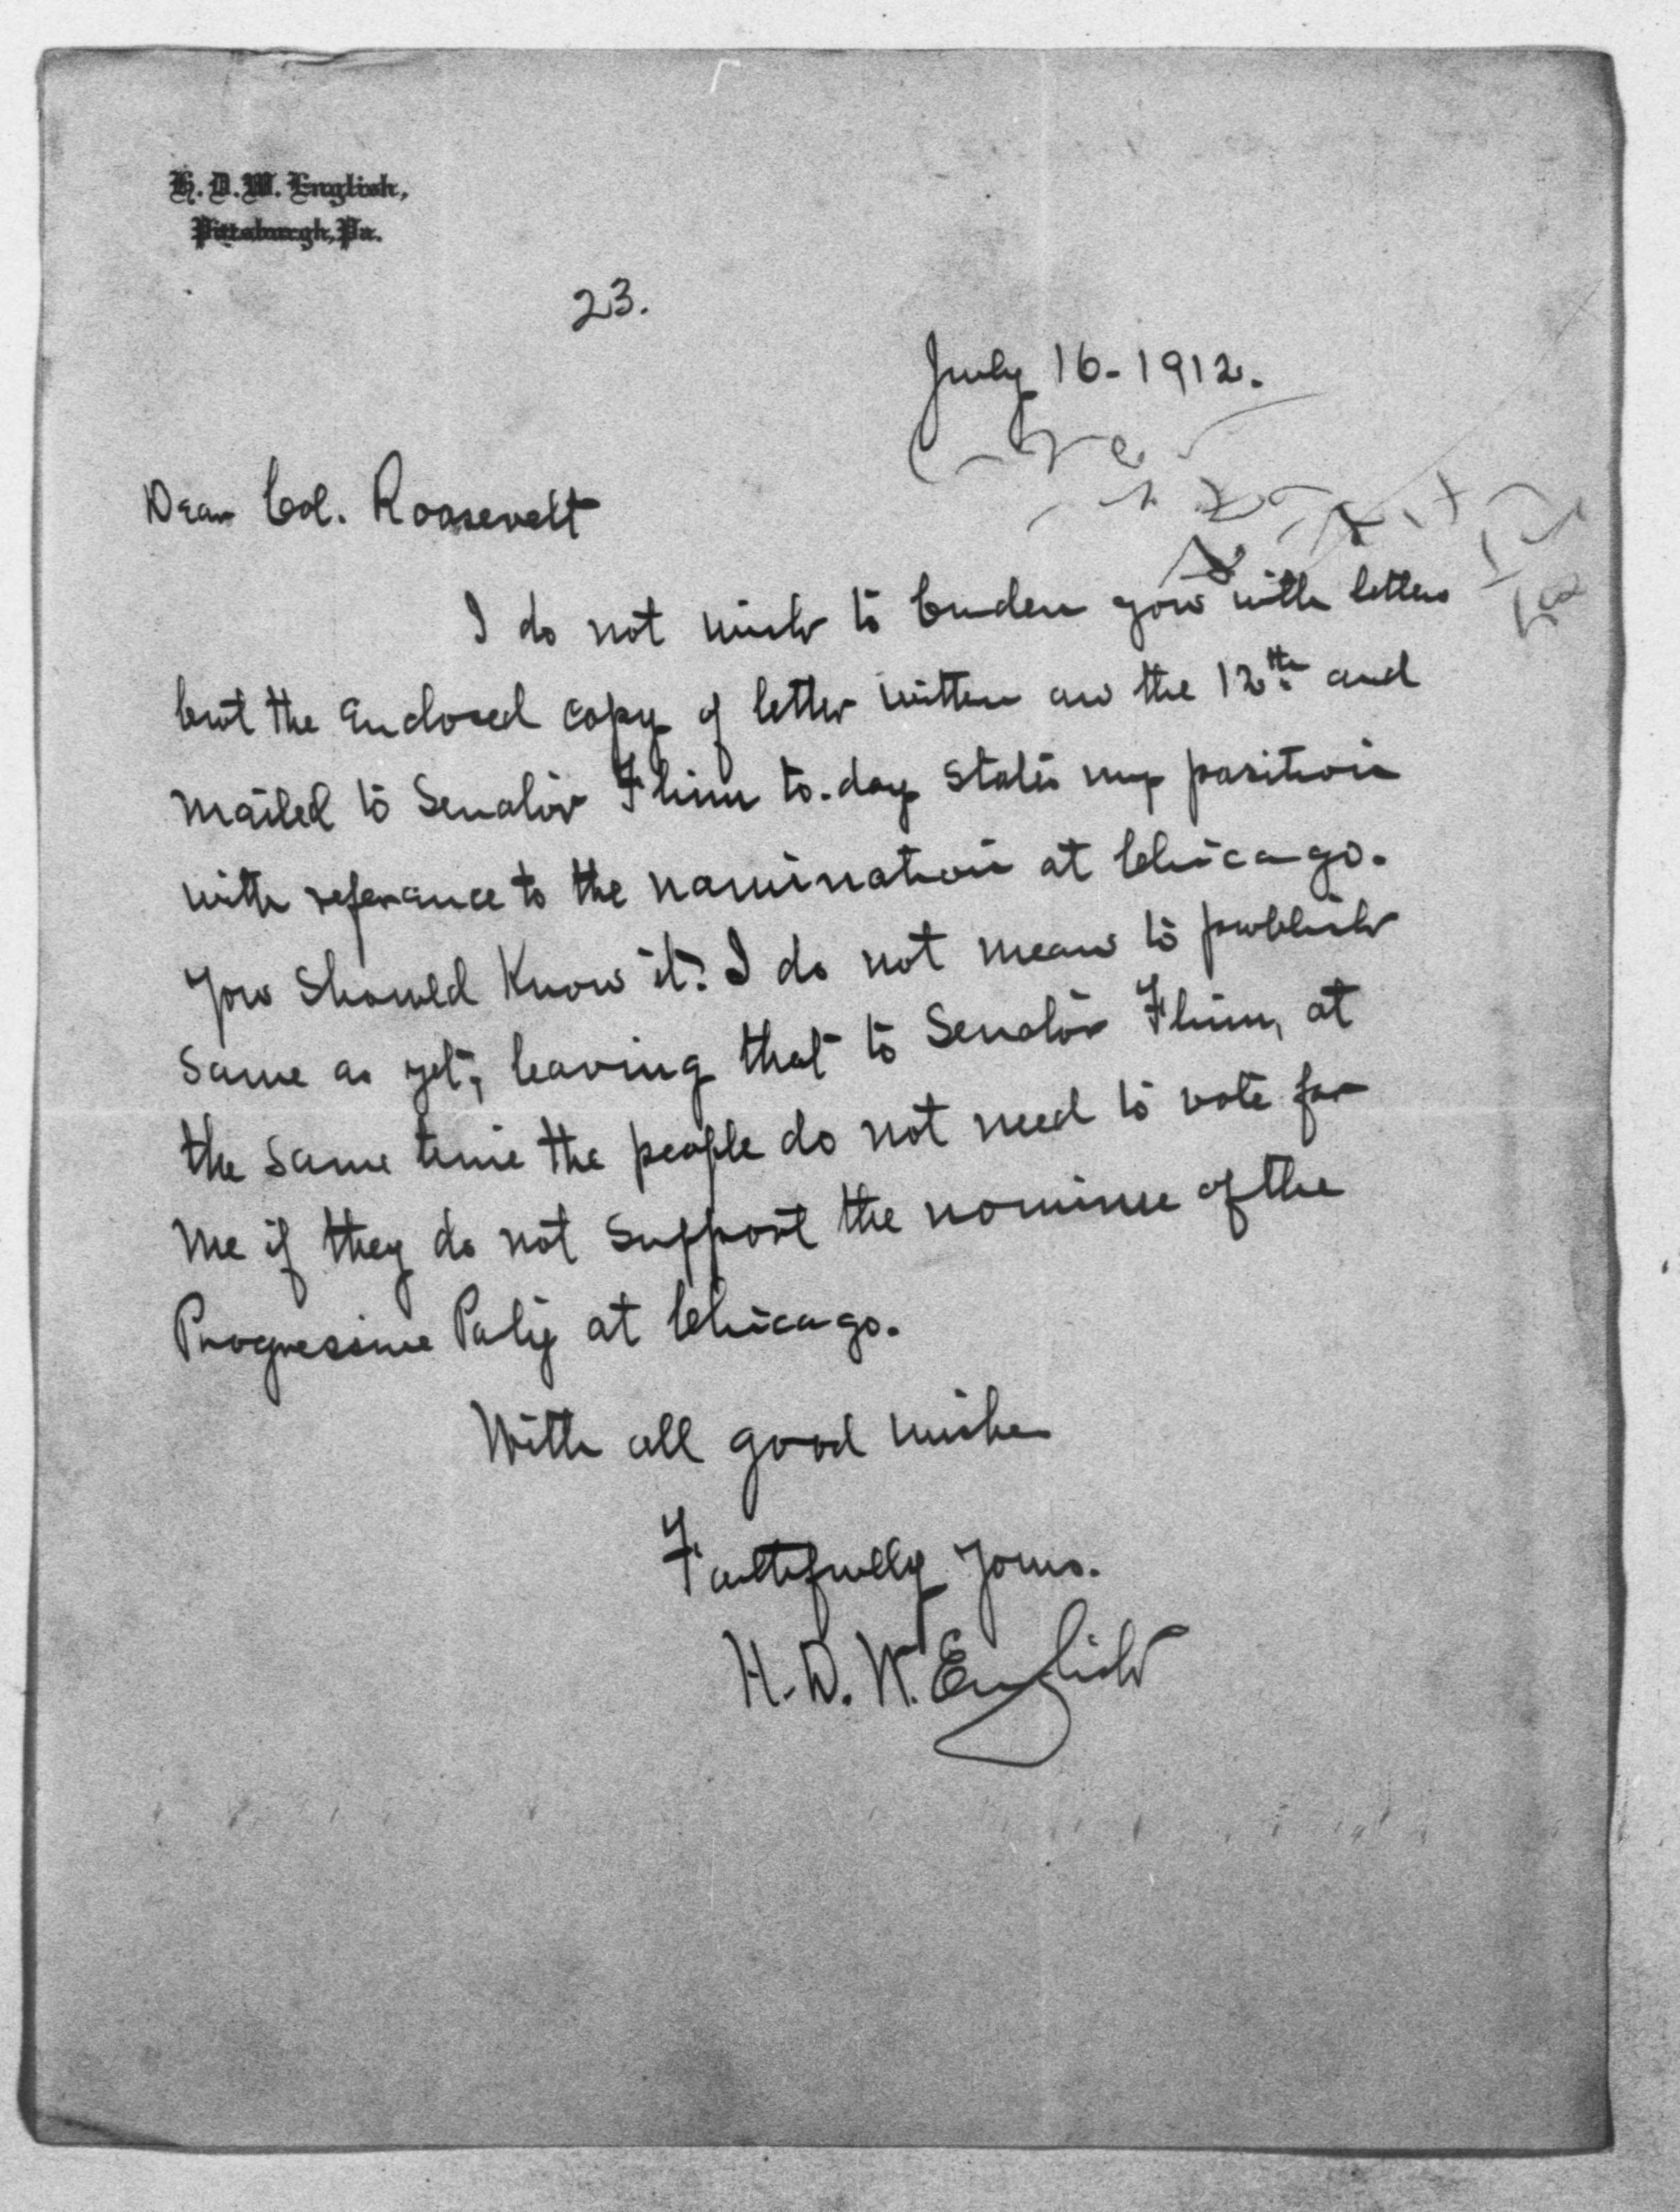 H. D. W. English,
Pittsburgh, Pa.
23.
July 16-1912.
Dear Col. Roosevelt
I do not wish to burden you with letters
but the enclosed copy of letter written on the 12th and
mailed to Senator Flinn to-day states my position
with referance to the nomination at Chicago.
You should know it. I do not mean to publish
same as yet, leaving that to Senator Flinn, at
the same time the people do not need to vote for
me if they do not support the nominee of the
Progressive Paty at Chicago.
With all good wishes
Faithfully Yours.
H. D. W. English